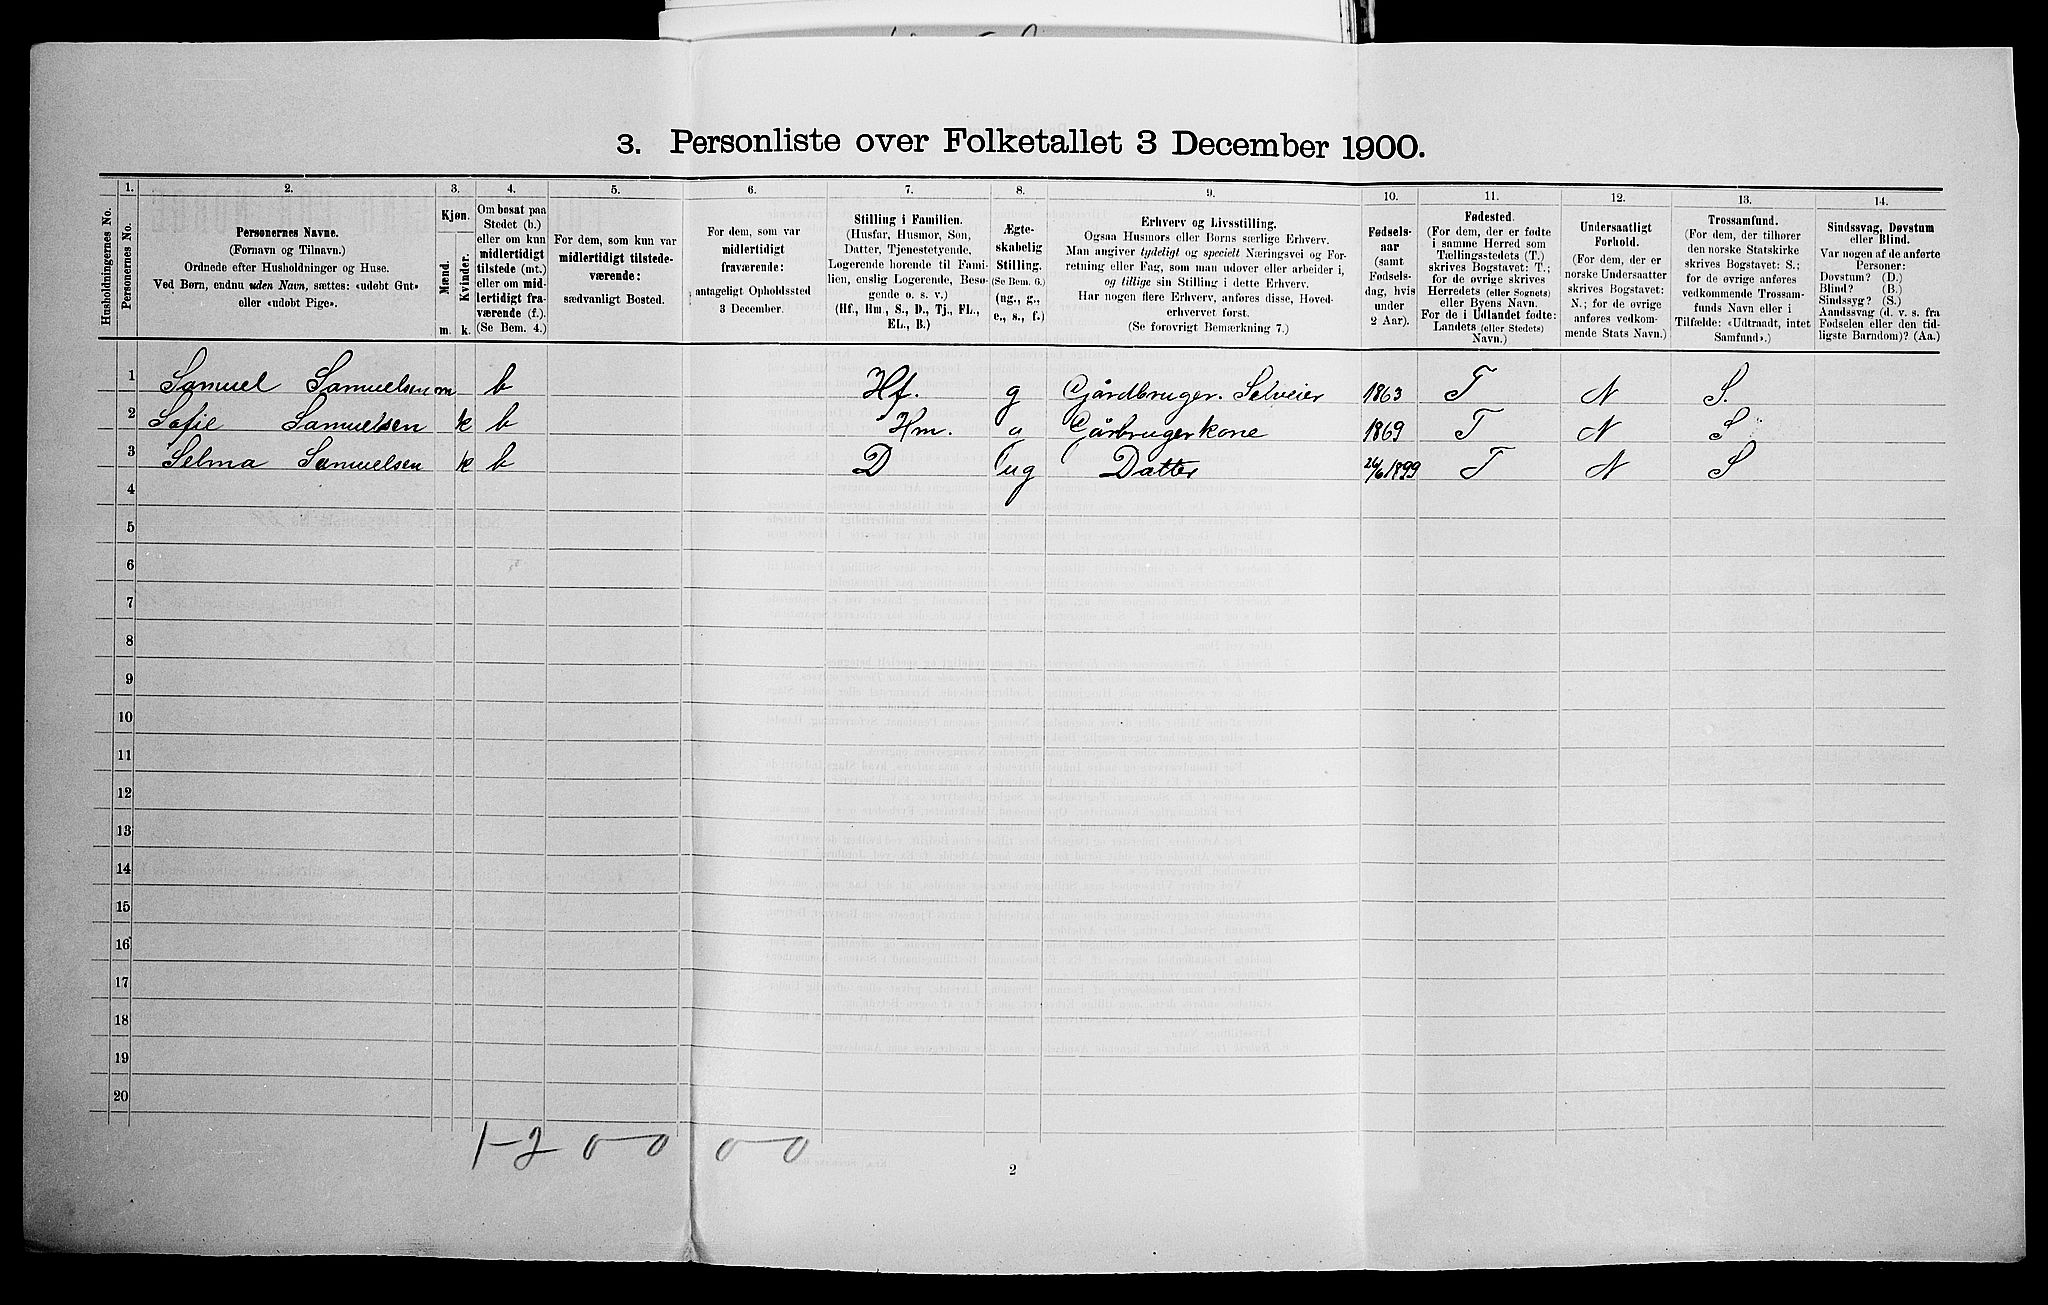 3. Personliste over Folketallet 3 December 1900.
1. 2. 3. 4. 5. 6. 7. 8. 9. 10. 11. 12. 13. 14.
Husholdningernes No.
Personernes No.
Personernes Navne.
(Fornavn og Tilnavn.)
Ordnede efter Husholdninger og Huse.
Ved Børn, endnu uden Navn, sættes: «udøbt Gut»
eller «udøbt Pige».
Kjøn.
Mænd.
Kvinder.
m. k.
Om bosat paa
Stedet (b.)
eller om kun
midlertidigt
tilstede (mt.)
eller om mid-
lertidigt fra-
værende (f.).
(Se Bem. 4.)
For dem, som kun var
midlertidigt tilstede-
værende:
sædvanligt Bosted.
For dem, som var
midlertidigt
fraværende:
antageligt Opholdssted
3 December.
Stilling i Familien.
(Husfar, Husmor, Søn,
Datter, Tjenestetyende,
Logerende hørende til Fami-
lien, enslig Logerende, Besø-
gende o. s. v.)
(Hf., Hm., S., D., Tj., FL.,
EL., B.)
Ægte-
skabelig
Stilling.
(Se Bem. 6.)
(ug., g.,
e., s., f.)
Erhverv og Livsstilling.
Ogsaa Husmors eller Børns særlige Erhverv.
Man angiver tydeligt og specielt Næringsvei og For-
retning eller Fag, som man udøver eller arbeider i,
og tillige sin Stilling i dette Erhverv.
Har nogen flere Erhverv, anføres disse, Hoved-
erhvervet først.
(Se forøvrigt Bemærkning 7.)
Fødsels-
aar
(samt
Fødsels-
dag, hvis
under
2 Aar).
Fødested.
(For dem, der er fødte
i samme Herred som
Tællingsstedets (T.)
skrives Bogstavet: T.;
for de øvrige skrives
Herredets (eller Sognets)
eller Byens Navn.
For de i Udlandet fødte:
Landets (eller Stedets)
Navn.)
Undersaatligt
Forhold.
(For dem, der er
norske Undersaatter
skrives Bogstavet:
N.; for de øvrige
anføres vedkom-
mende Stats Navn.)
Trossamfund.
(For dem, der tilhører
den norske Statskirke
skrives Bogstavet: S.;
for de øvrige anføres
vedkommende Trossam-
funds Navn eller i
Tilfælde: «Udtraadt, intet
Samfund».)
Sindssvag, Døvstum
eller Blind.
Var nogen af de anførte
Personer:
Døvstum? (D.)
Blind? (B.)
Sindssyg? (S.)
Aandssvag (d. v. s. fra
Fødselen eller den tid-
ligste Barndom)? (Aa.)
1 Samuel Samuelsen m b Hf. g Gårdbruger. Selveier 1863 T N S.
2 Sofie Samuelsen k b Hm. Gårbrugerkone 1869 T N S
3 Selma Samuelsen k b D ug Datter 26/6 1899 T N S
4
5
6
7
8
9
10
11
12
13
14
15
16
17
18
19
20
1-2 0-0 0-0
2